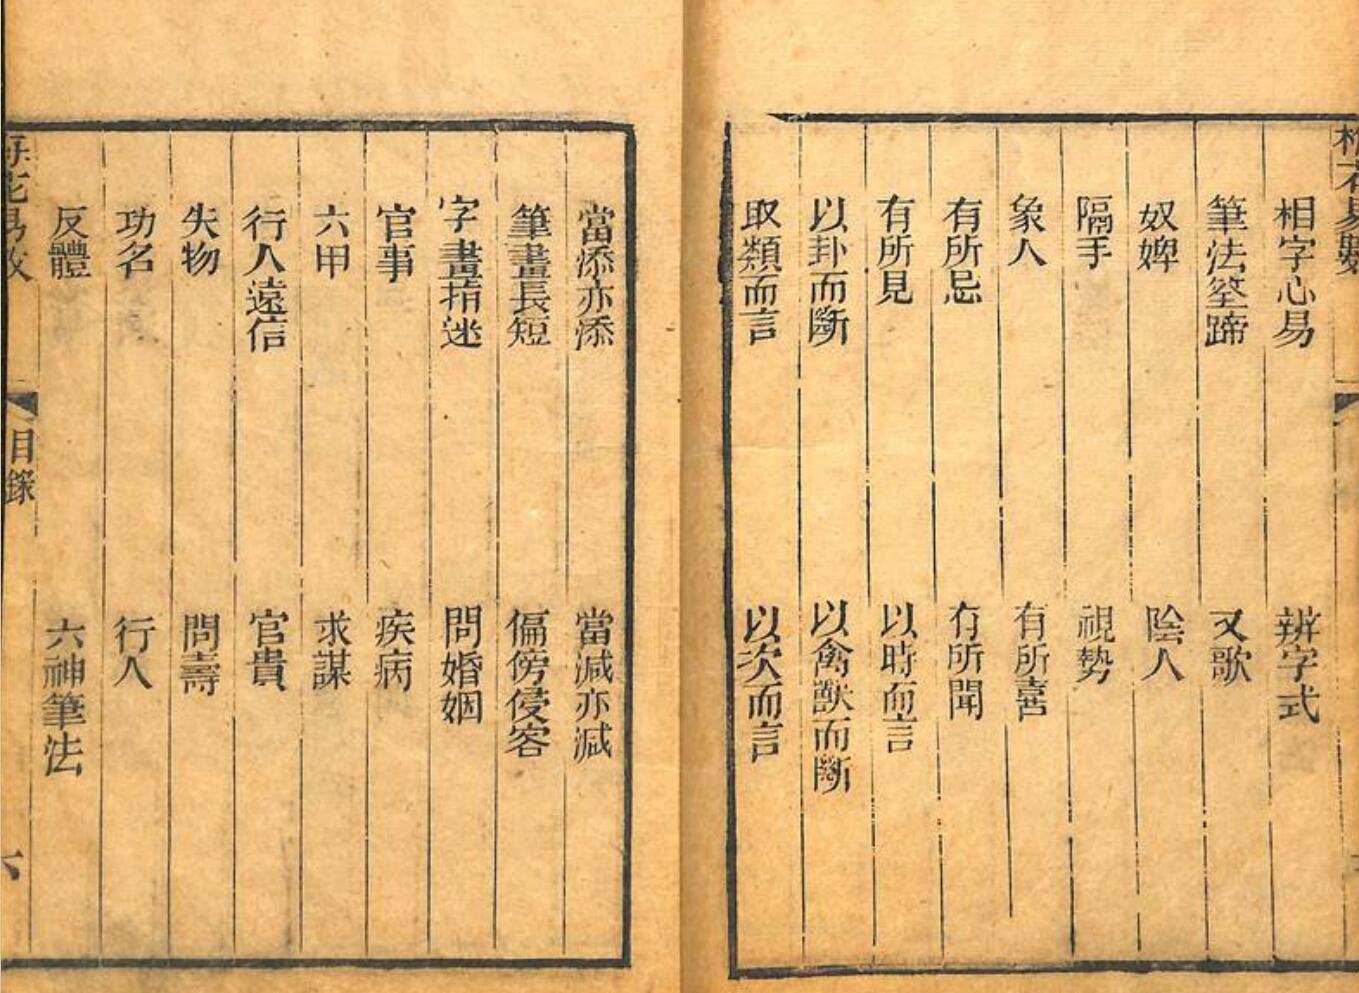 相字心易
辨字式
筆法筌蹄
又歌
奴婢
陰人
隔手
視勢
象人
有所喜
有所忌
有所聞
有所見
以時而言
以卦而斷
以禽獸而斷
取類而言
以次而言
當添亦添
當減亦減
筆畫長短
偏傍侵客
字畫指迷
問婚姻
官事
疾病
六甲
求謀
行人遠信
官貴
失物
問壽
功名
行人
反體
六神筆法
目錄
六